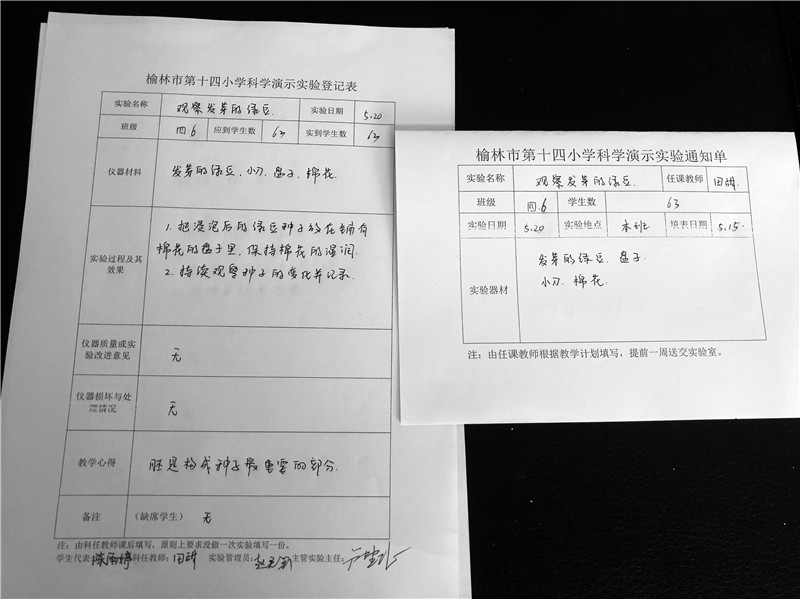 榆林市第十四小学科学演示实验登记表
实验名称 观察发芽的绿豆. 实验日期 5.20
班级 四.6 应到学生数 63 实到学生数 63
仪器材料 发芽的绿豆、小刀、盘子、棉花.
1. 把浸泡后的绿豆种子放在铺有
棉花的盘子里,保持棉花的湿润.
实验过程及其效果
2. 持续观察种子的变化并记录.
仪器质量或实验改进意见 无
仪器损坏与处理情况 无
教学心得 胚是构成种子最重要的部分.
备注 (缺席学生) 无
注:由科任教师课后填写,原则上要求没做一次实验填写一份。
学生代表: 科任教师:田胡 实验管理员: 主管实验主任:
榆林市第十四小学科学演示实验通知单
实验名称 观察发芽的绿豆. 任课教师 田胡.
班级 四.6 学生数 63
实验日期 5.20 实验地点 本班 填表日期 5.15.
实验器材 发芽的绿豆、盘子.
小刀、棉花.
注:由任课教师根据教学计划填写,提前一周送交实验室。